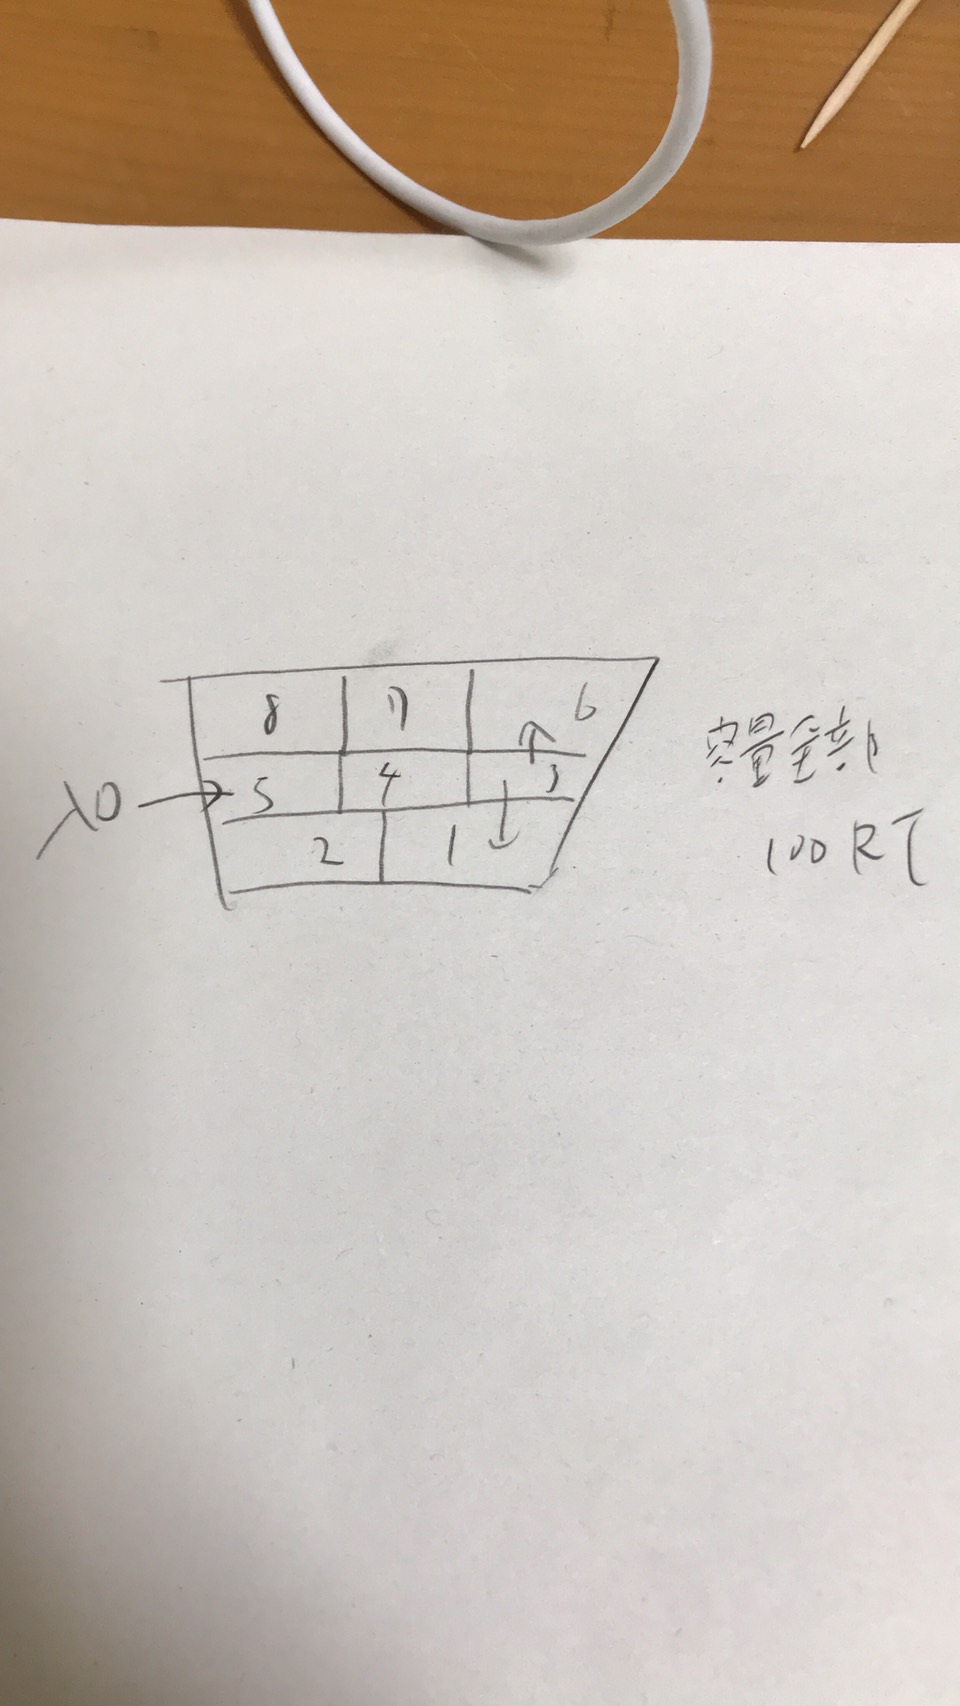 8 7 6
入口 → 5 4 3
2 1
容量全部
100RT